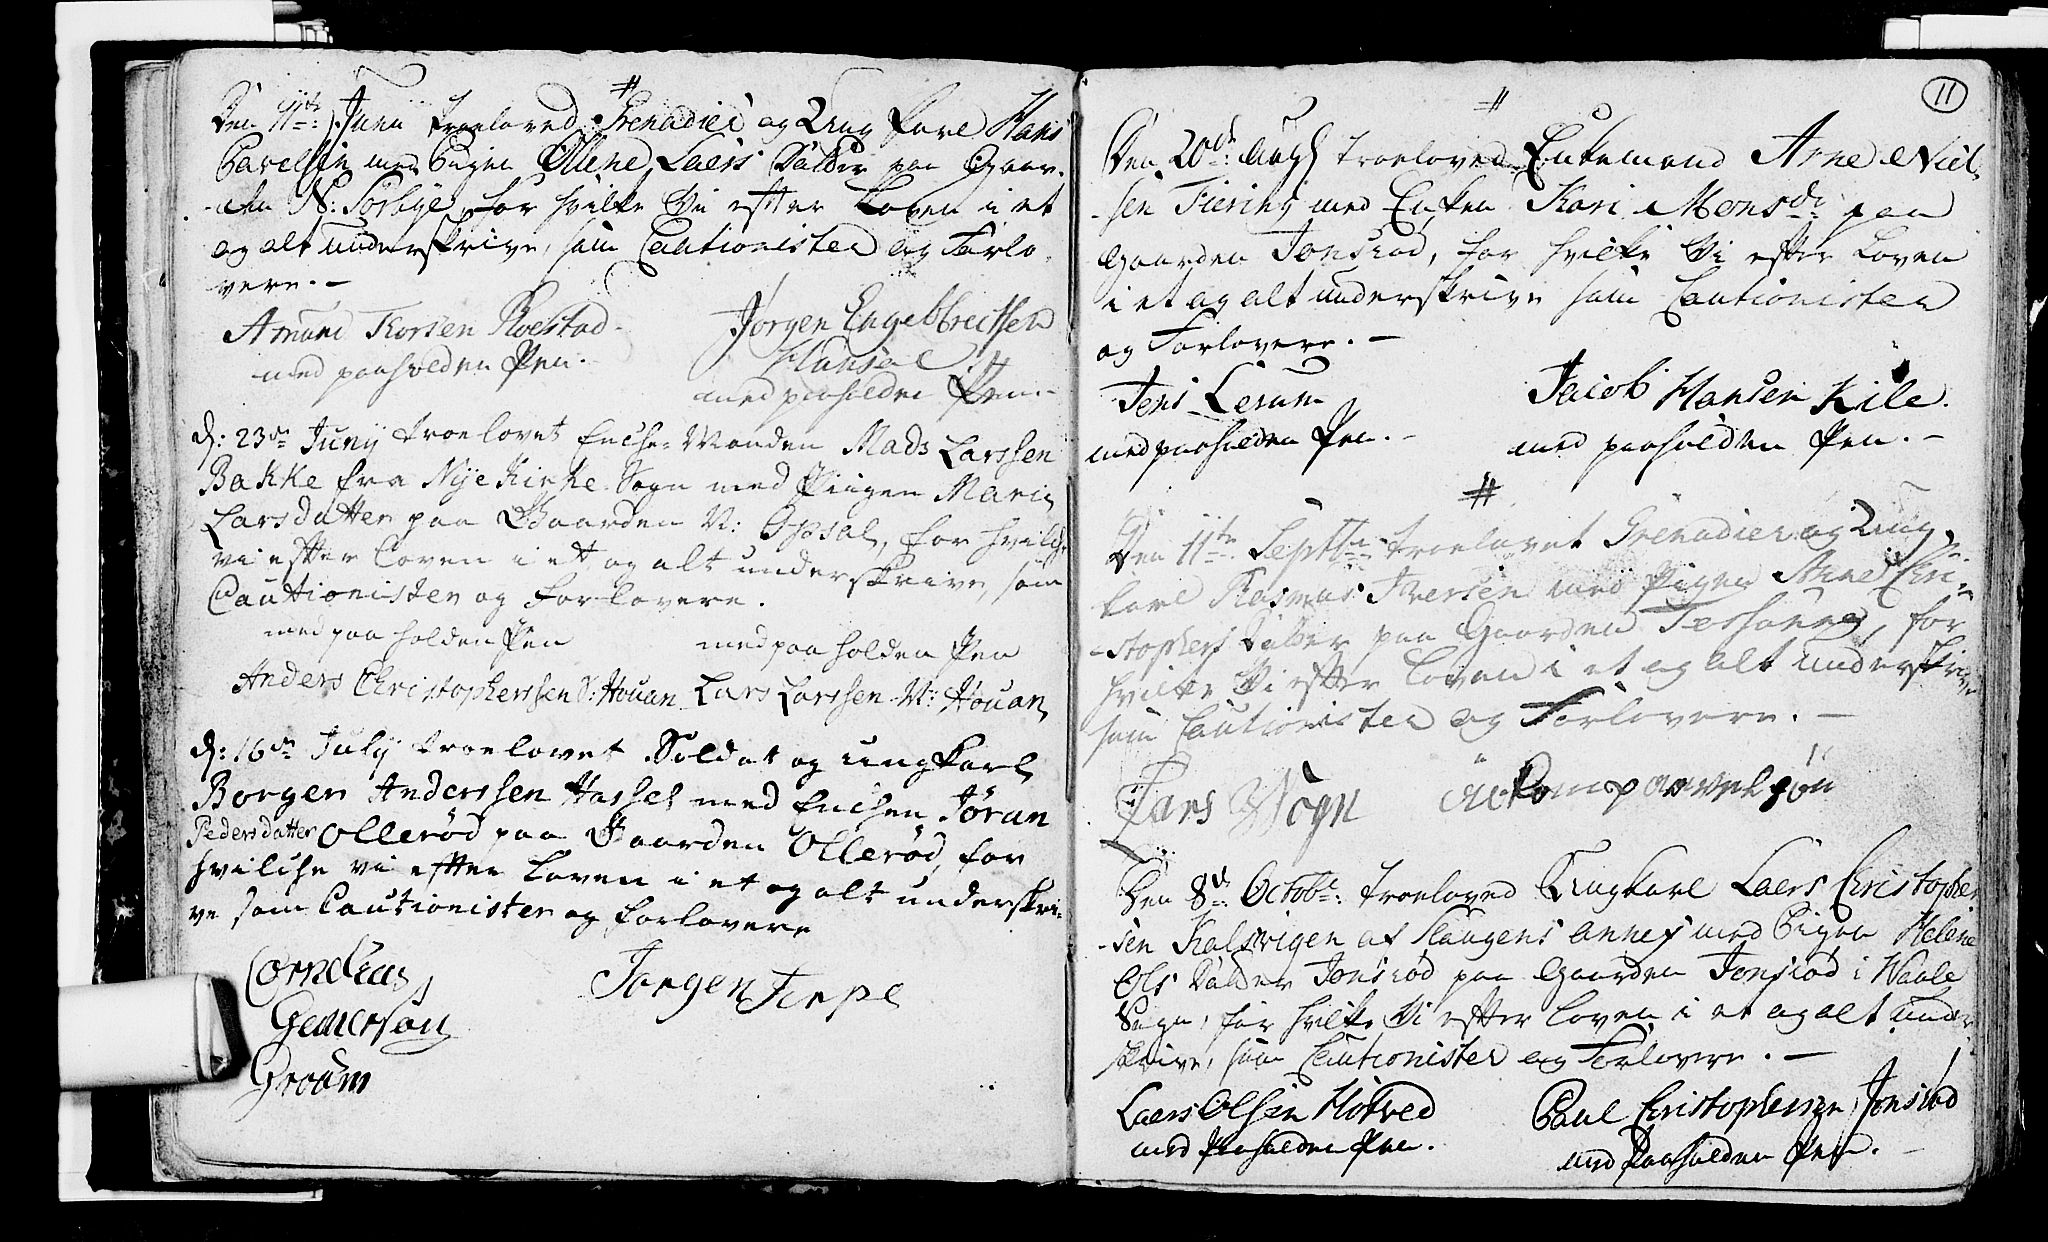 #
Den 11te Junii troeloved Grenadier og Ung Karl Hans
Pavelsen med Pigen Ollene Laers Datter paa Gaar-
-den N: Sørbye, for hvilke Vi efter Loven i et
og alt underskrive, som Cautionister og Forlo-
vere. -
Amund Korsen Roestad -
med paaholden Pen.
Jørgen Engelbrecthsen
Hansøe
med paaholden Pen. -
d: 23de Junij troelovet Enche-Manden Mads Larssen
Bakke fra Nÿekirke Sogn med Piigen Mari
Larsdatter paa Gaarden N: Opsal, for hvilche
vi efter loven i et og alt underskrive, som
Cautionister og forlovere.
med paa holden Pen
med paa holden Pen
Anders Christopherssen S: Houan
Lars Larssen N: Houan
d: 16de Julij troelovet Soldat og ungkarl
Borger Anderssen Hassel med Enchen Jøran
Pedersdatter Ollerød paa Gaarden Ollerød, for
hvilche vi efter loven i et og alt underskri-
ve som Cautionister og forlovere
Cornelius
Gemerson
Groum
Jørgen Firpe
11
#
Den 20de Aug troeloved Enkemand Arne Niel-
-sen Fiering med Enken Kari Monsdr paa
Gaarden Jonsrød, for hvilke Vi efter Loven
i et og alt underskrive som Cautionister
og Forlovere. -
Jens Lerum
med paaholden Pen. -
Jacob Hansen Kile.
med paaholden Pen. -
#
Den 11te Septbr troelovet Grenadier og Ung
karl Rasmus Iversen med Pigen Anne Chri-
-stophers Datter paa Gaarden, for
hvilke Vi efter Loven i et og alt underskrive
som Cautionister og Forlovere. -
Lars Wogn
Den 8de Octobr: troeloved Ungkarl Laers Christopher
-sen Kalsvigen af Skaugens Annex med Pigen Helene
Ols Datter Jonsrød paa Gaarden Jonsrød i Waale
Sogn, for hvilke Vi efter Loven i et og alt under
skrive, som Cautionister og Forlovere. -
Laers Olsen Høtved
med Paaholden Pen.
Paul Christophersen Jonsrød
med Paaholden Pen. -